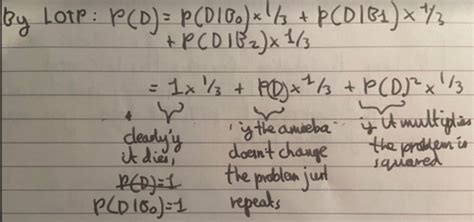 By LOTP: P(D) = P(D|B₀) × 1/3 + P(D|B1) × 1/3
+ P(D|B₂) × 1/3
= 1 × 1/3 + P(D) × 1/3 + P(D)² × 1/3
clearly if it dies, P(D)=1
P(D|B₀)=1
if the amoeba doesn't change the problem just repeats
if it multiplies the problem is squared